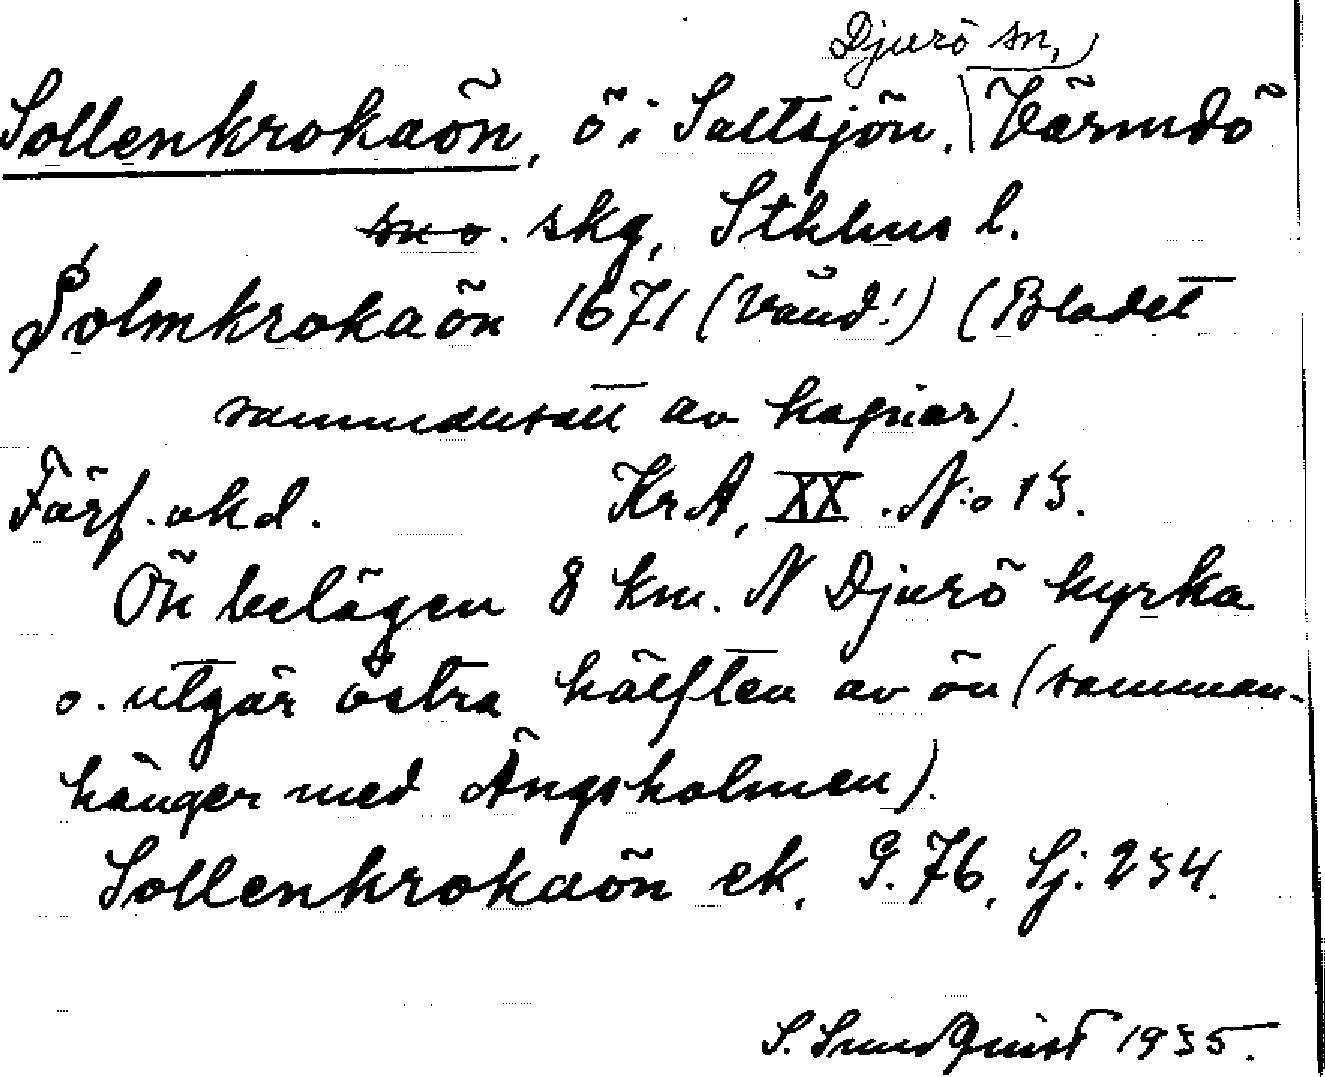 Djurö sn,
Sollenkrokaön, ö i Saltsjön, Värmdö
sn o. skg, Sthlms l.
Solmkrokaön 1671 (vänd!) (Bladet
sammansatt av kopior).
Förf. okd. Kr A, XX. N:o 13.
Ön belägen 8 km. N Djurö kyrka
o. utgör östra hälften av ön (samman-
hänger med Ängsholmen).
Sollenkrokaön ek. G. 76, Sj. 234.
S. Sundquist 1935.